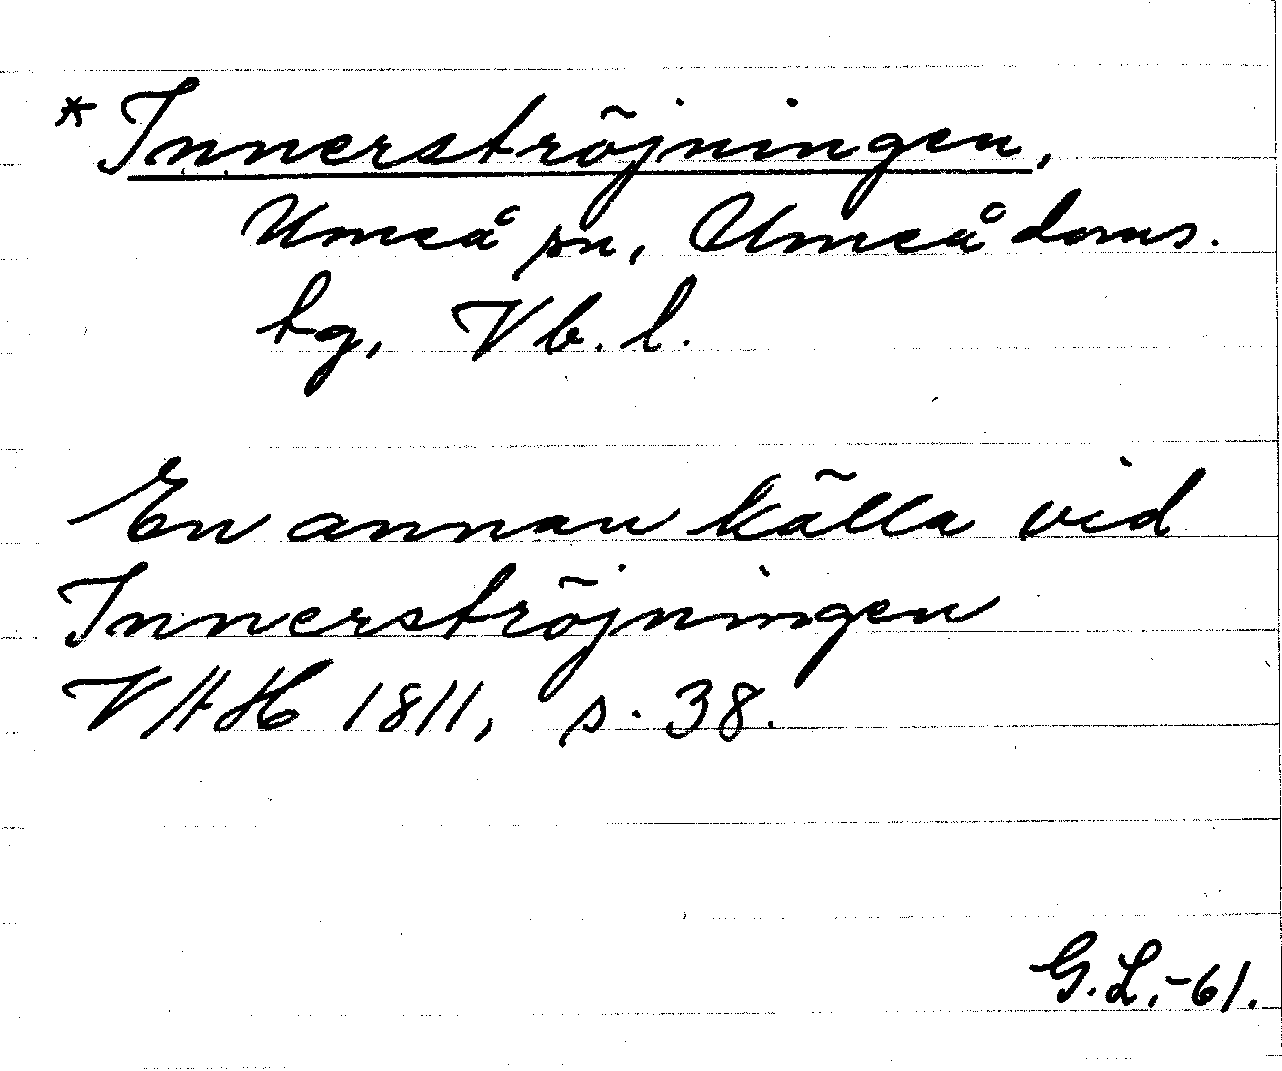 * Innerströjningen,
Umeå sn, Umeå doms.
tg, Vb. l.
En annan källa vid
Innerströjningen
VAH 1811, s. 38.
G.L.-61.